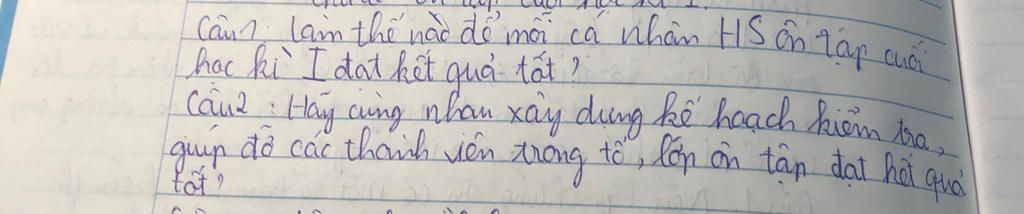 Câu1: làm thế nào để mỗi cá nhân HS ôn tập cuối
học kì I đạt kết quả tốt?
Câu2: Hãy cùng nhau xây dựng kế hoạch kiểm tra,
giúp đỡ các thành viên trong tổ, lớp ôn tập đạt kết quả
tốt?